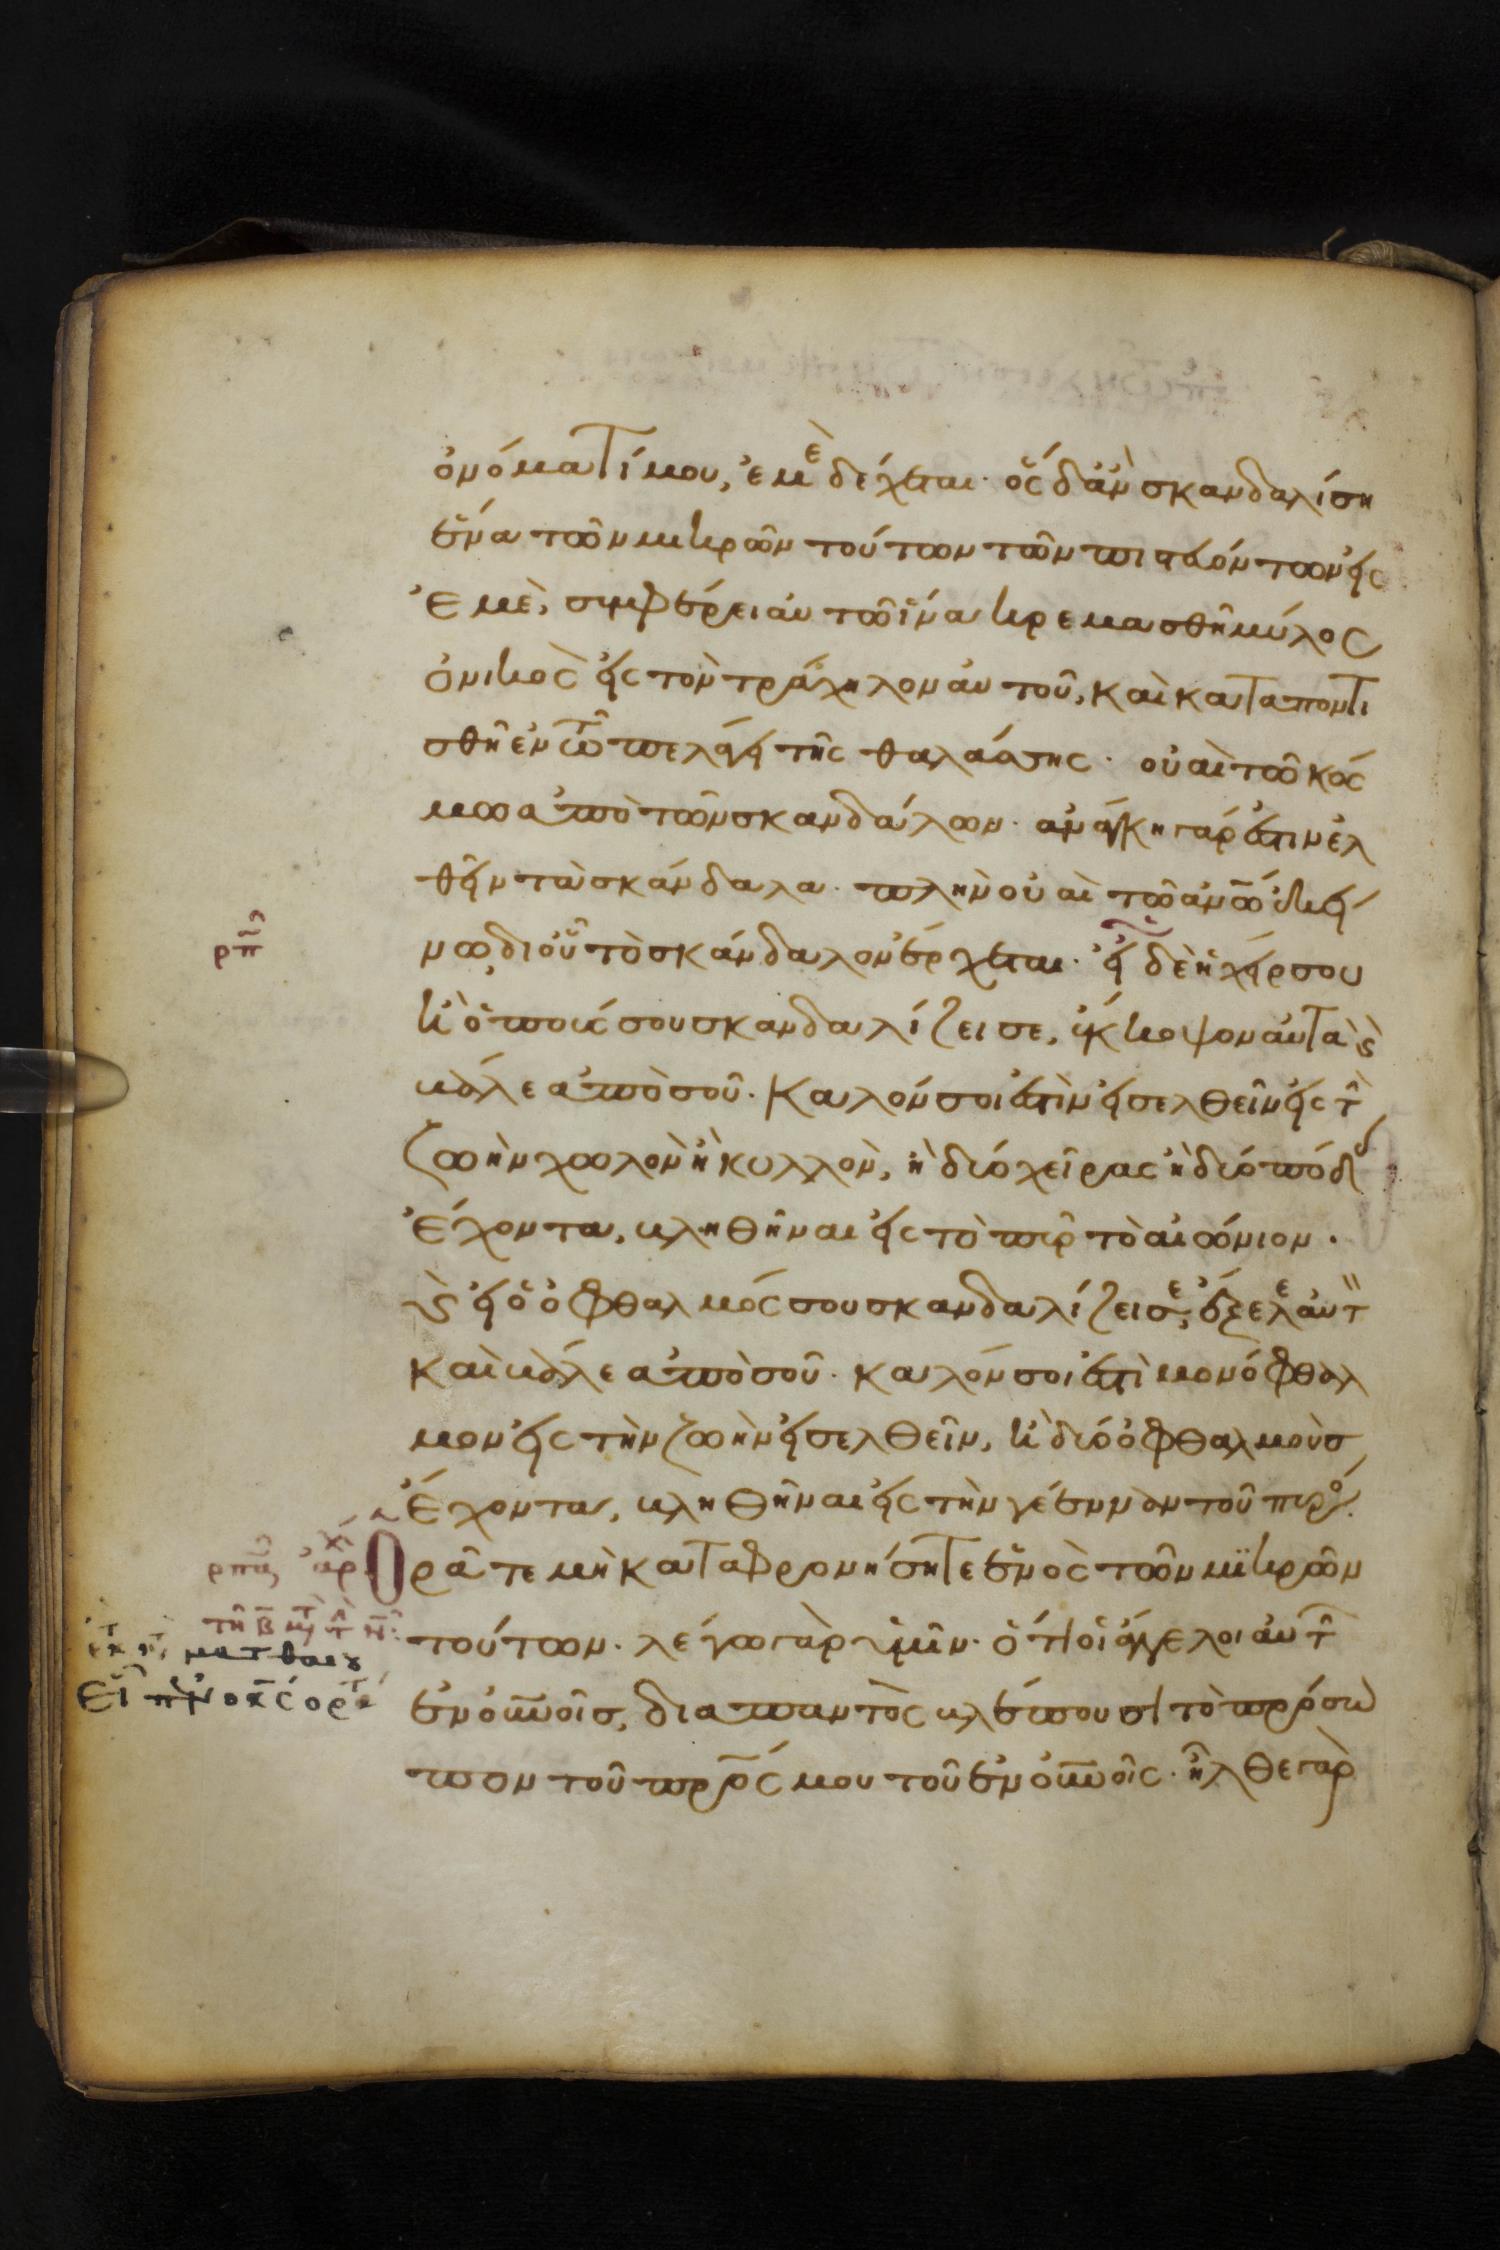 ὀνόματί μου, ἐμὲ δέχεται· ὃς δ' ἂν σκανδαλίση
ἕνα τῶν μικρῶν τούτων τῶν πιστευόντων εἰς
ἐμὲ, συμφέρει αὐτῶ ἵνα κρεμασθῆ μύλος
ὀνικὸς εἰς τὸν τράχηλον αὐτοῦ, καὶ καταποντι
σθῆ ἐν τῶ πελάγει τῆς θαλάσσης· οὐαὶ τῶ κόσ
μω ἀπὸ τῶν σκανδάλων· ἀνάγκη γάρ ἐστιν ἐλ
θεῖν τὰ σκάνδαλα· πλὴν οὐαὶ τῶ ἀνω ἐκεί
νω, δι οὗ τὸ σκάνδαλον ἔρχεται· εἰ δὲ ἡ χείρ σου
ἢ ὁ πούς σου σκανδαλίζει σε, ἔκκοψον αὐτὰ ϗ
βάλε ἀπὸ σοῦ· καλόν σοι ἐστὶν εἰσελθεῖν εἰς τ
ζωὴν χωλὸν ἢ κυλλὸν, ἢ δύο χεῖρας ἢ δύο πόδ
ἔχοντα, βληθῆναι εἰς τὸ πῦρ τὸ αἰώνιον·
ϗ εἰ ὁ ὀφθαλμός σου σκανδαλίζει σε, ἔξελε αὐτ
καὶ βάλε ἀπὸ σοῦ· καλόν σοι ἐστὶ μονόφθαλ
μον εἰς τὴν ζωὴν εἰσελθεῖν, ἢ δύο ὀφθαλμοὺς
ἔχοντα, βληθῆναι εἰς τὴν γέενναν τοῦ πυρός·
ρπ
Ὁρᾶτε μὴ καταφρονήσητε ἑνὸς τῶν μικρῶν
τούτων· λέγω γὰρ ὑμῖν· ὅτι οἱ ἄγγελοι αὐτ
ἐν οὐνοῖς, διαπαντὸς βλέπουσι τὸ πρόσω
πον τοῦ πρς μου τοῦ ἐν οὐνοῖς· ἦλθε γὰρ
ματθαιου